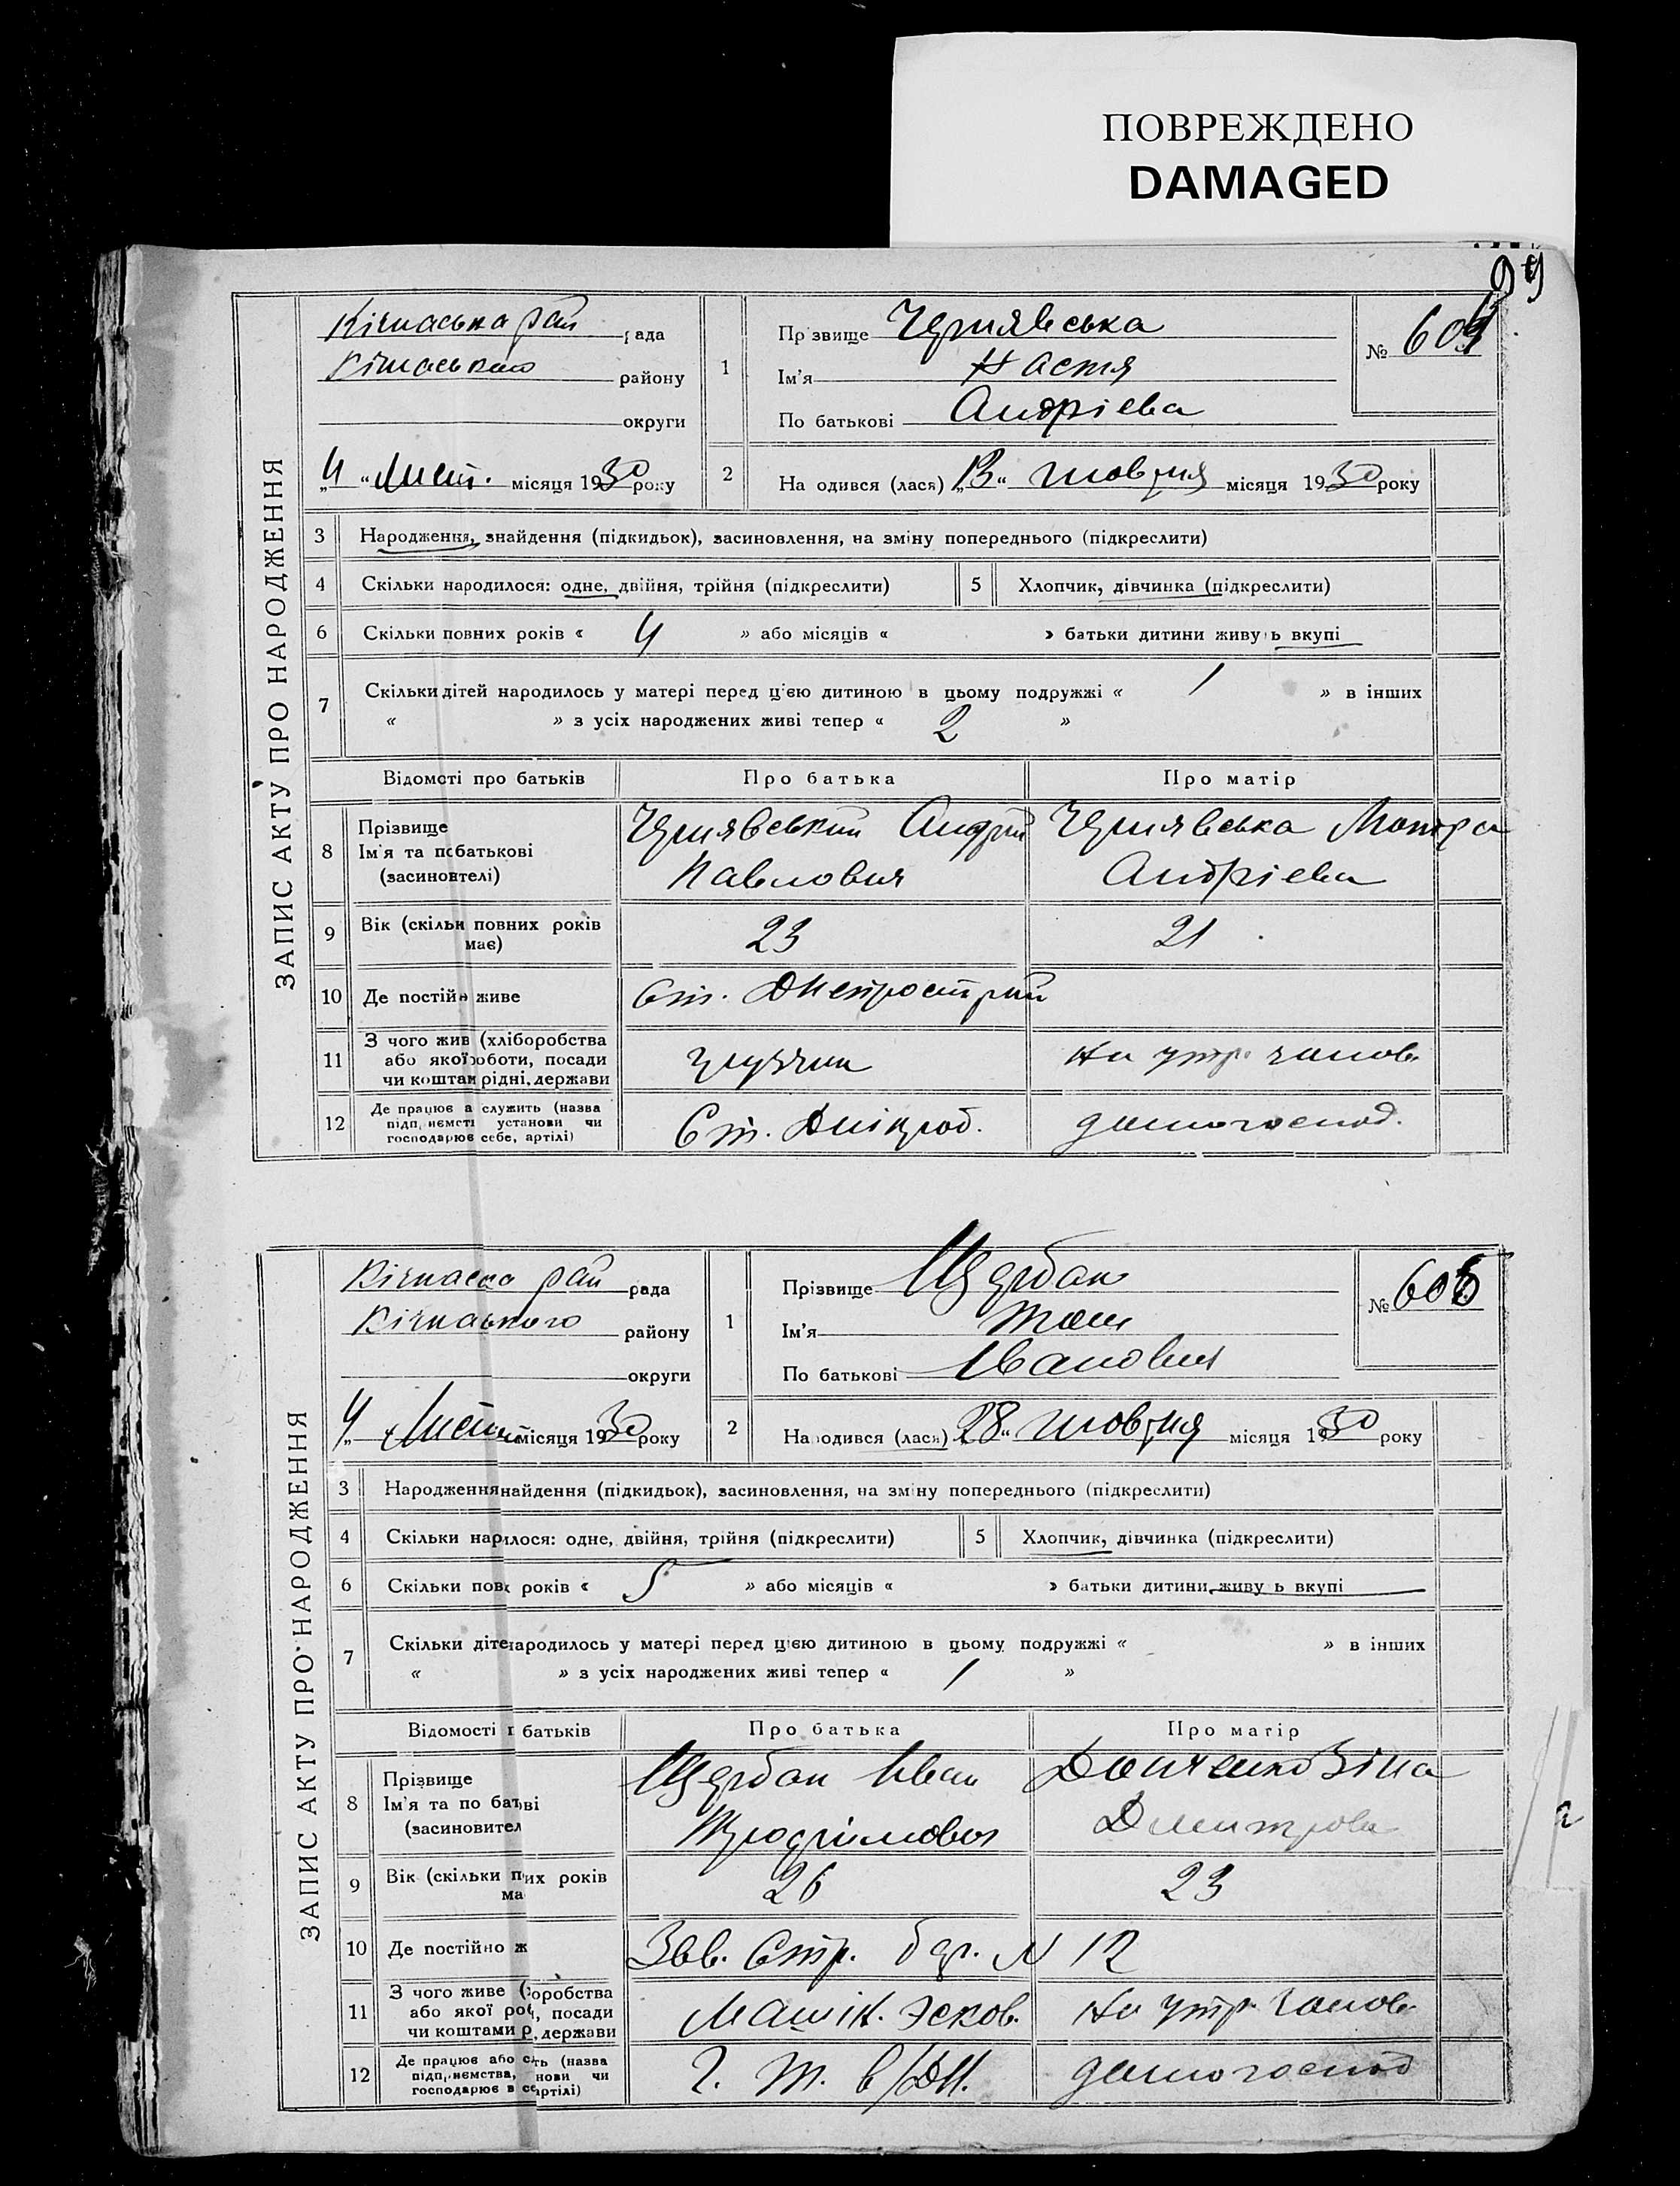 ПОВРЕЖДЕНО
DAMAGED
99
ЗАПИС АКТУ ПРО НАРОДЖЕННЯ
Кічкаська рай рада
Кічкаського району
округи
„4“ Лист. місяця 1930 року
1
Прізвище Чернявська
Ім'я Настя
По батькові Андрієва
№ 604
2 Народився (лася) „13“ жовтня місяця 1930 року
3 Народження, знайдення (підкидьок), засиновлення, на зміну попереднього (підкреслити)
4 Скільки народилося: одне, двійня, трійня (підкреслити) 5 Хлопчик, дівчинка (підкреслити)
6 Скільки повних років « 4 » або місяців « » батьки дитини живуть вкупі
7 Скільки дітей народилось у матері перед цією дитиною в цьому подружжі « 1 » в інших
« » з усіх народжених живі тепер « 2 »
Відомості про батьків Про батька Про матір
8 Прізвище Ім'я та по батькові (засиновителі)
Чернявський Андрій Павлович
Чернявська Мотря Андрієва
9 Вік (скільки повних років має) 23 21
10 Де постійно живе Ст. Днепрострий
11 З чого живе (хліборобства або якої роботи, посади чи коштами рідні, держави
на утр. чолов.
12 Де працює або служить (назва підприємства, установи чи господарює в себе, артілі)
Ст. домогоспод.
ЗАПИС АКТУ ПРО НАРОДЖЕННЯ
рай рада
Кічкаського району
округи
„4“ Лист місяця 1930 року
1
Прізвище Щербак
Ім'я
По батькові Іванович
№ 605
2 Народився (лася) „28“ жовтня місяця 1930 року
3 Народження знайдення (підкидьок), засиновлення, на зміну попереднього (підкреслити)
4 Скільки народилося: одне, двійня, трійня (підкреслити) 5 Хлопчик, дівчинка (підкреслити)
6 Скільки повних років « 5 » або місяців « » батьки дитини живуть вкупі
7 Скільки дітей народилось у матері перед цією дитиною в цьому подружжі « » в інших
« » з усіх народжених живі тепер « 1 »
Відомості про батьків Про батька Про матір
8 Прізвище Ім'я та по батькові (засиновителі)
Щербак Іван
Донченко Зіна Дмитрова
9 Вік (скільки повних років має) 26 23
10 Де постійно живе Зав. Стр. бар. N 12
11 З чого живе (хліборобства або якої роботи, посади чи коштами рідні, держави
Машін. Эсков. на утр. чолов.
12 Де працює або служить (назва підприємства, установи чи господарює в себе, артілі)
домогоспод